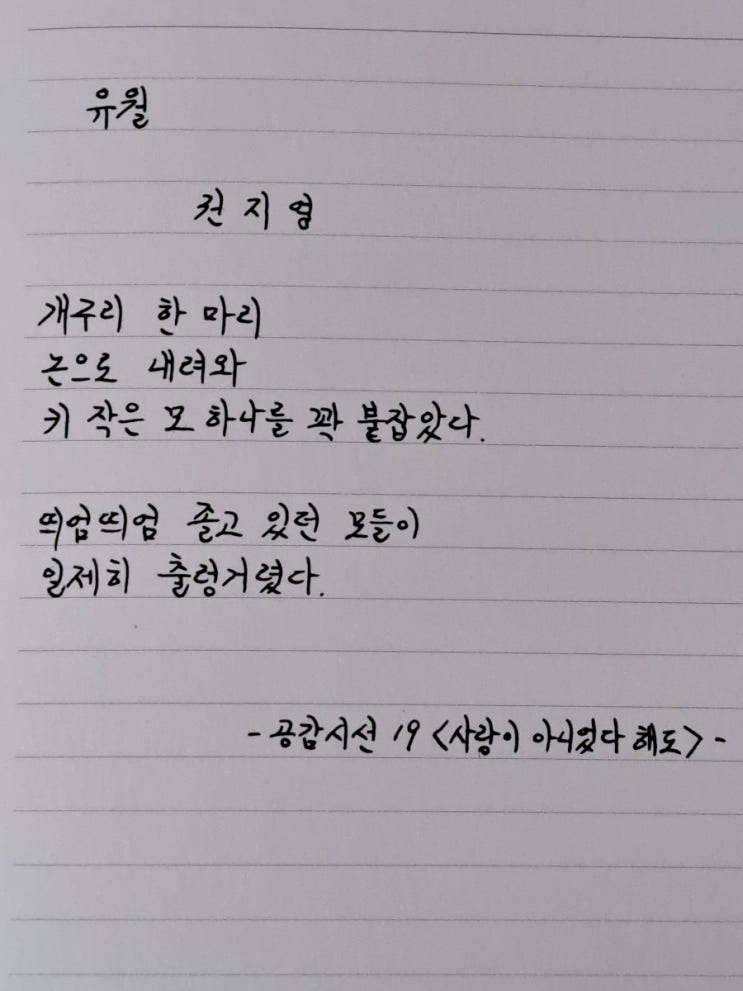 유월
권지영
개구리 한 마리
논으로 내려와
키 작은 모 하나를 꽉 붙잡았다.
띄엄띄엄 졸고 있던 모들이
일제히 출렁거렸다.
- 공감시선 19 <사랑이 아니었다 해도> -